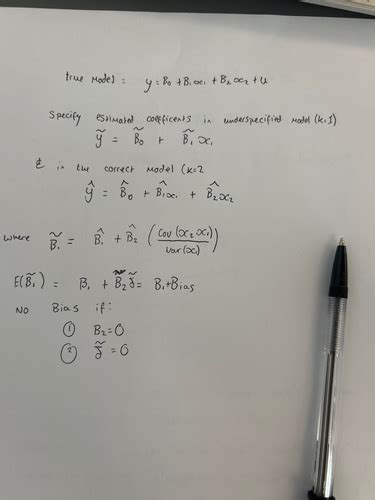 true model: y = B₀ + B₁x₁ + B₂x₂ + u
Specify estimated coefficents in underspecified model (k=1)
ỹ = B̃₀ + B̃₁x₁
& in the correct model (k=2
ŷ = B̂₀ + B̂₁x₁ + B̂₂x₂
where B̃₁ = B̂₁ + B̂₂ (Cov(x₂x₁) / Var(x₁))
E(B̃₁) = B₁ + B₂δ̃ = B₁+Bias
NO Bias if:
① B₂=0
② δ̃ = 0